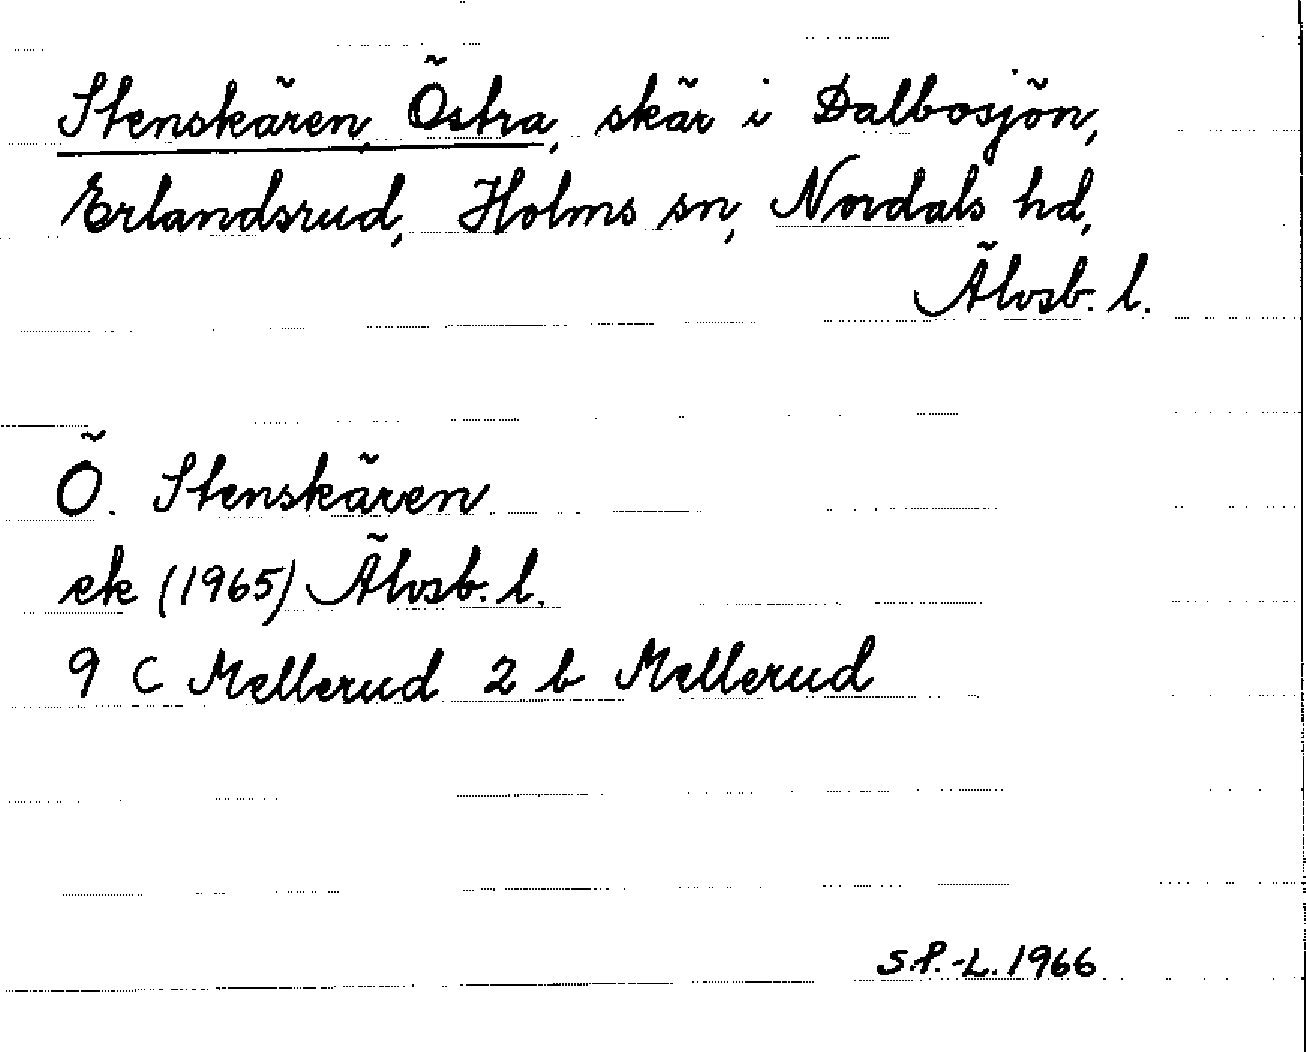 Stenskären, Östra, skär i Dalbosjön,
Erlandsrud, Holms sn, Nordals hd,
Älvsb. l.
Ö. Stenskären
ek (1965) Älvsb. l.
9 C Mellerud 2 b Mellerud
S.P.-L. 1966